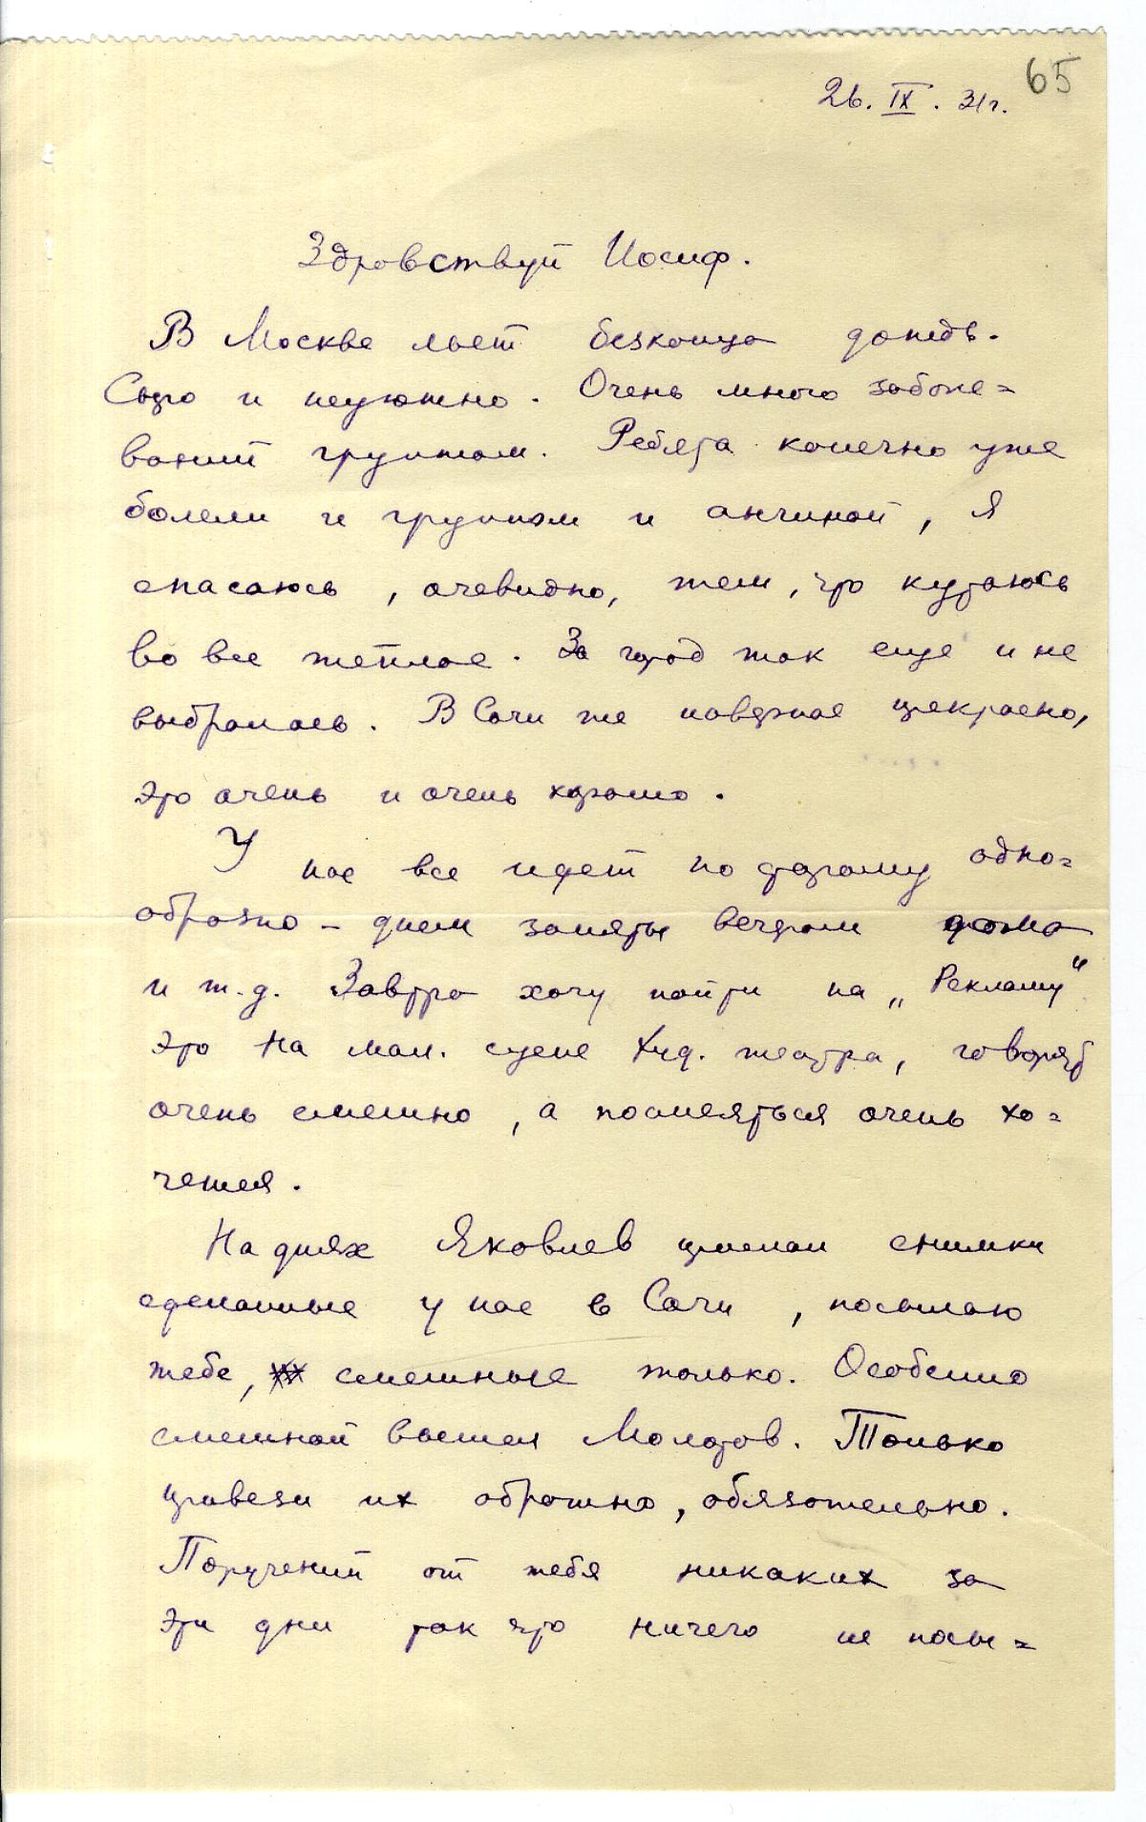 65
26. IX. 31 г.
Здравствуй Иосиф.
В Москве льет безконца дождь.
Сыро и неуютно. Очень много заболе=
ваний гриппом. Ребята конечно уже
болели и гриппом и ангиной, я
спасаюсь, очевидно, тем, что кутаюсь
во все теплое. За город так еще и не
выбралась. В Сочи же наверное прекрасно,
это очень и очень хорошо.
У нас все идет по старому одно=
образно – днем заняты вечером дома
и т.д. Завтра хочу пойти на „Рекламу"
это на мал. сцене Худ. театра, говорят
очень смешно, а посмеяться очень хо=
чется.
На днях Яковлев прислал снимки
сделанные у нас в Сочи, посылаю
тебе, смешные только. Особенно
смешной вышел Молотов. Только
привези их обратно, обязательно.
Поручений от тебя никаких за
эти дни так что ничего не посы=